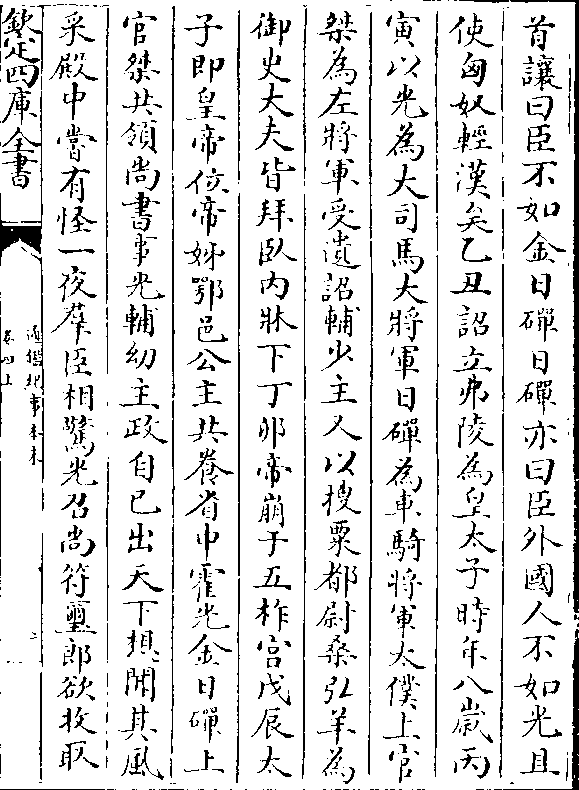 首讓曰臣不如金日磾日磾亦曰臣外國人不如光且
使匈奴輕漢矣乙丑詔立弗陵為皇太子時年八歲丙
寅以光為大司馬大將軍日磾為車騎將軍太僕上官
桀為左將軍受遺詔輔少主又以搜粟都尉桑弘羊為
御史大夫皆拜臥內牀下丁卯帝崩于五柞宮戊辰太
子即皇帝位帝姊鄂邑公主共養省中霍光金日磾上
官桀共領尚書事光輔幼主政自已出天下想聞其風
采殿中嘗有怪一夜羣臣相驚光召尚符璽郎欲收取
欽定四庫全書
通鑑紀事本末
卷四上